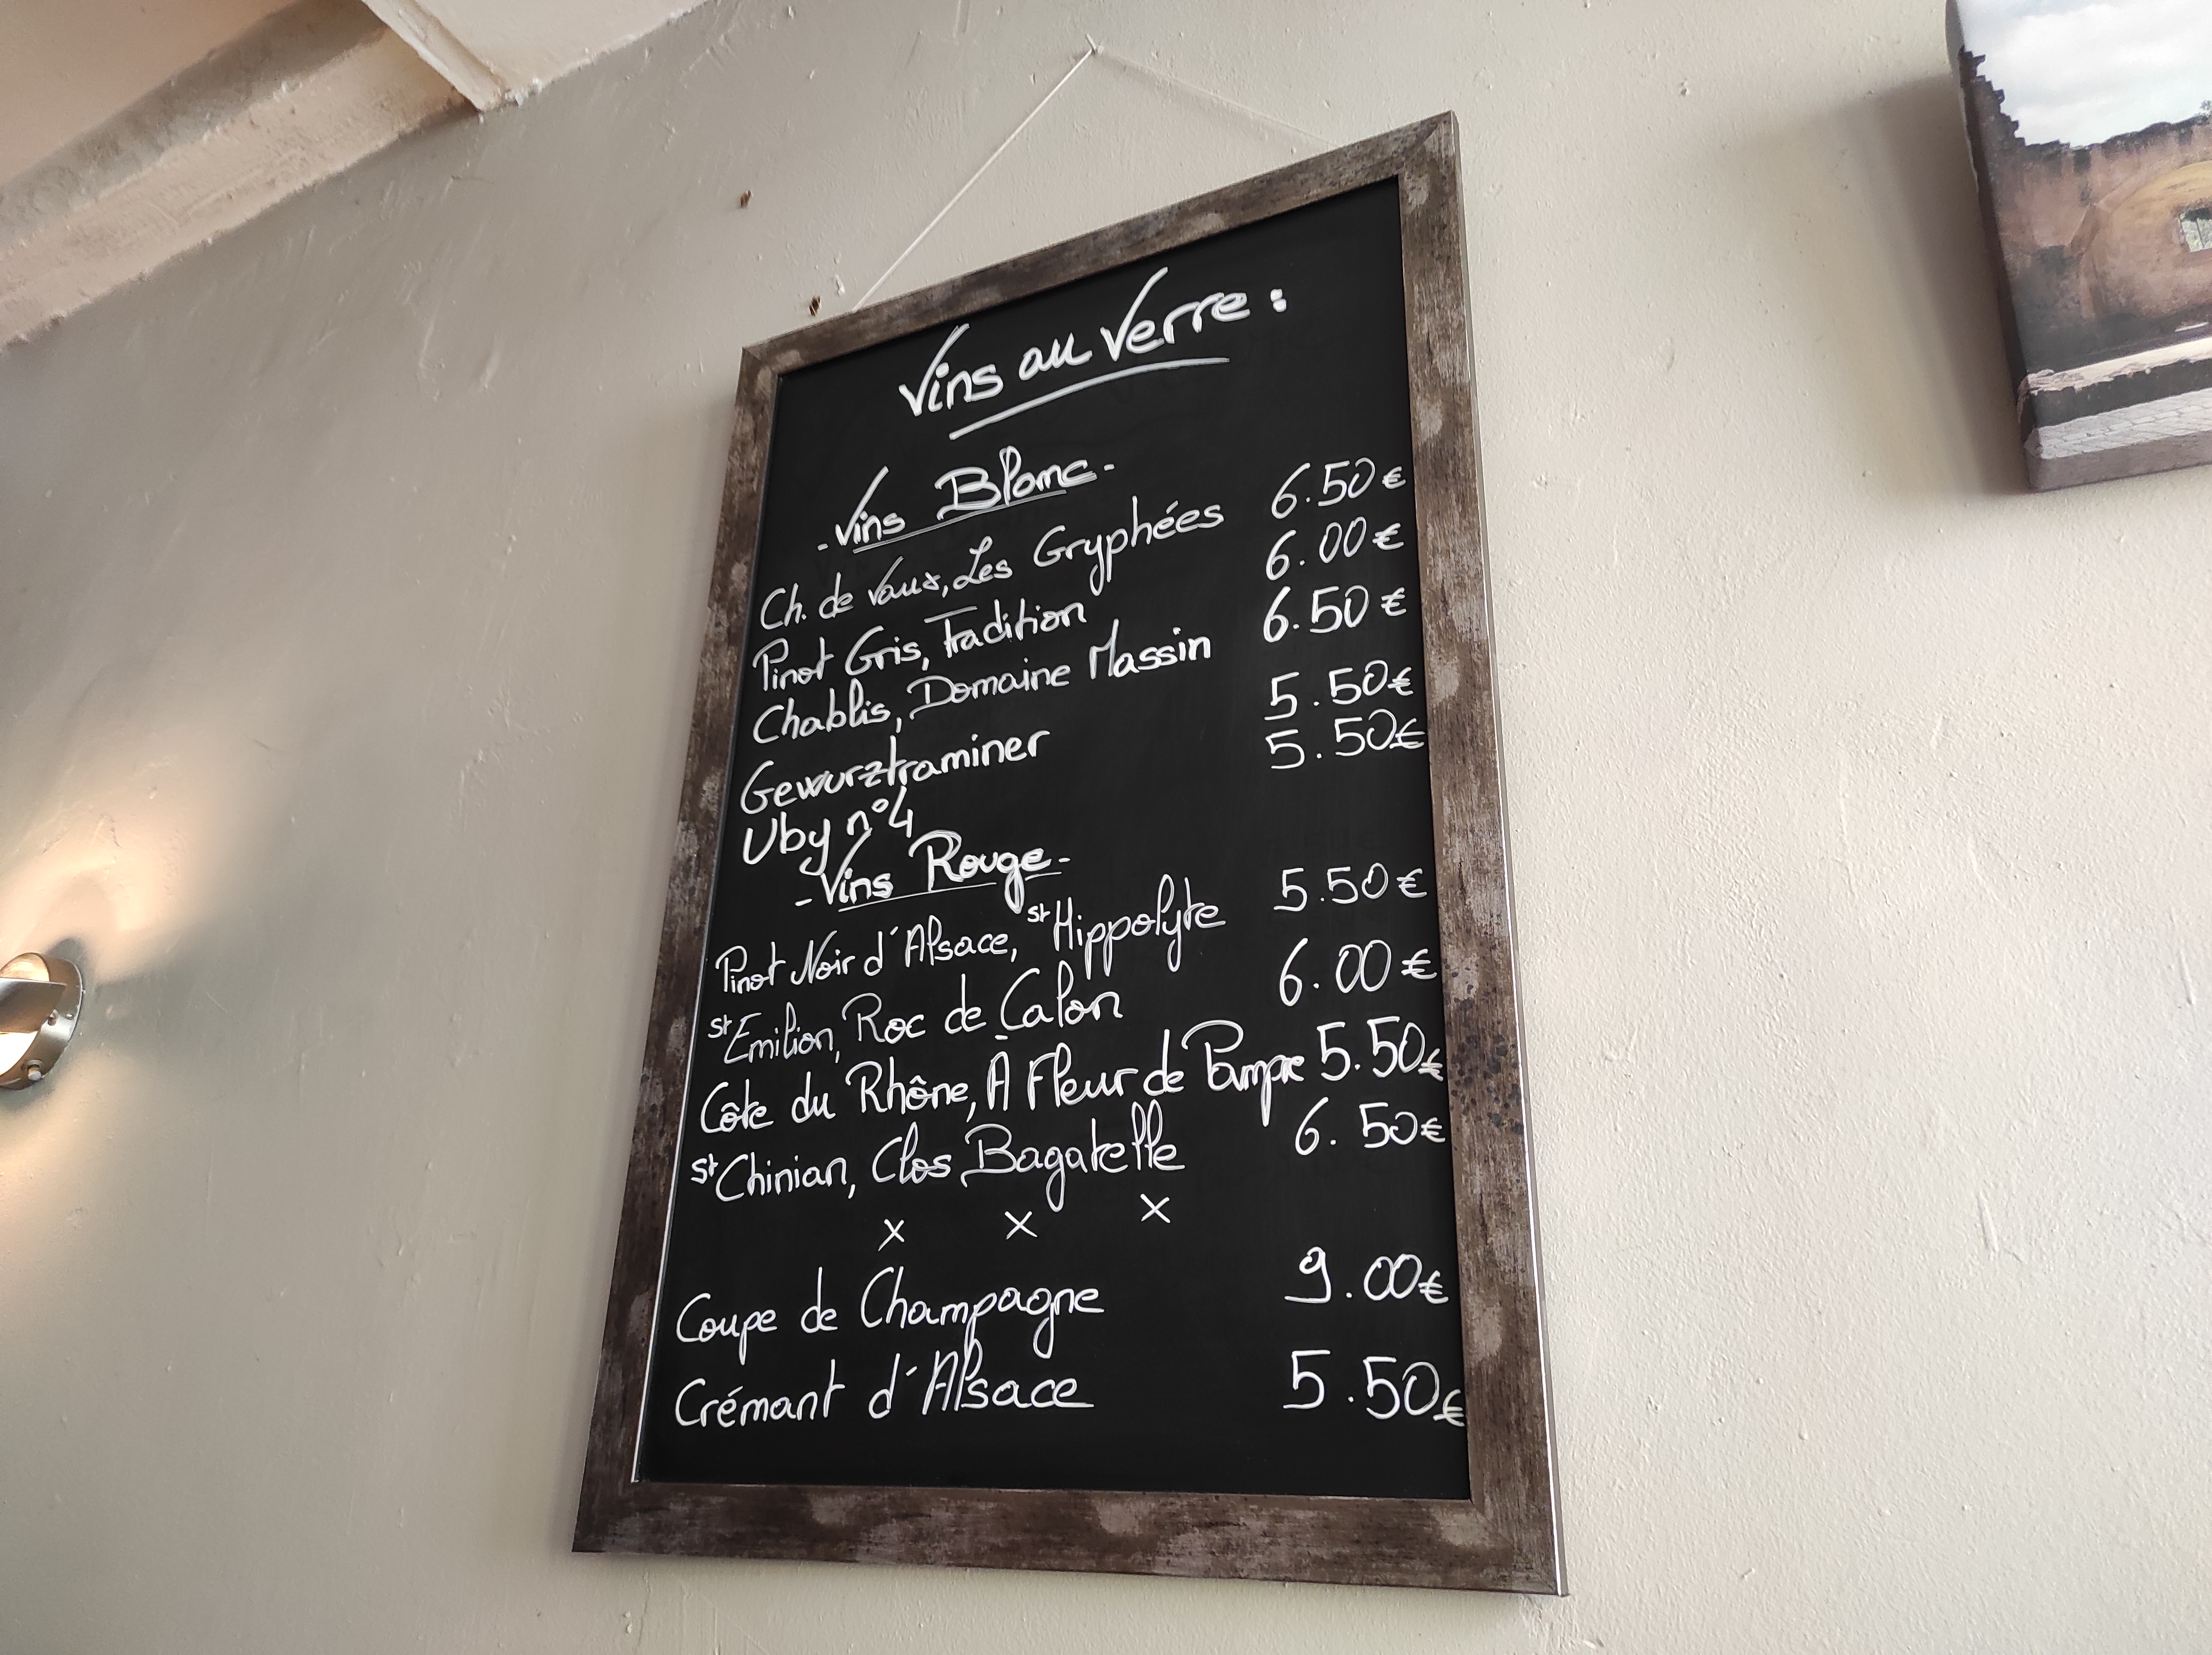 Vins au Verre :
- Vins Blanc -
Ch. de Vaux, Les Gryphées 6.50€
Pinot Gris, Tradition 6.00€
Chablis, Domaine Massin 6.50€
Gewurztraminer 5.50€
Uby n°4 5.50€
- Vins Rouge -
Pinot Noir d'Alsace, St Hippolyte 5.50€
St Emilion, Roc de Calon 6.00€
Côte du Rhône, À Fleur de Pampre 5.50€
St Chinian, Clos Bagatelle 6.50€
x x x
Coupe de Champagne 9.00€
Crémant d'Alsace 5.50€